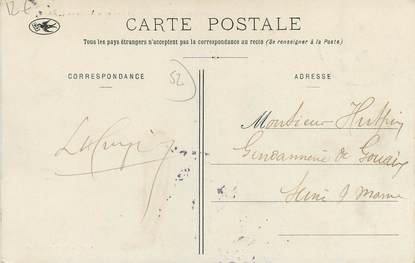 12 €
CARTE POSTALE
Tous les pays étrangers n'acceptent pas la correspondance au recto (Se renseigner à la Poste)
CORRESPONDANCE
52
ADRESSE
Monsieur
Gendarmerie de Gouaix
Seine & Marne